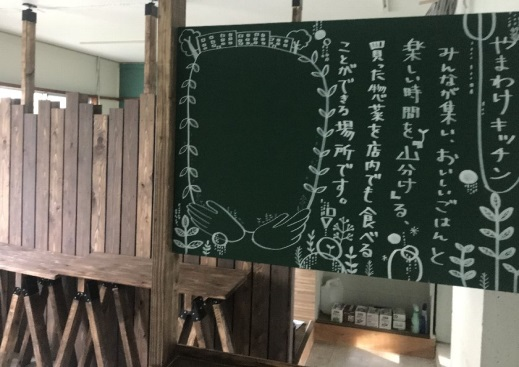 やまわけキッチン
みんなが集い、おいしいごはんと
楽しい時間を「山分け」する、
買った惣菜を店内でも食べる
ことができる場所です。